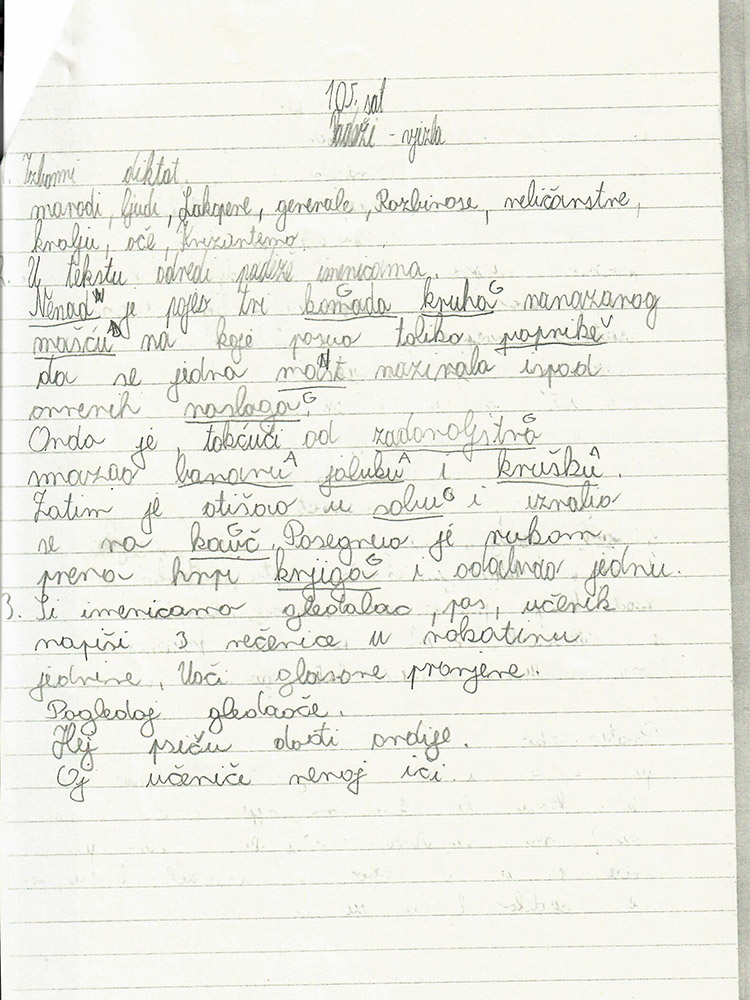 105. sat
Padeži - vježba
1. Izborni diktat
narodi, ljudi, Zakopane, generale, Razbinose, veličanstvo,
kralju, oče, Krizantemo
2. U tekstu odredi padeže imenicama.
Nenad N je pojeo tri komada G kruha G namazanog
mašću na koje posuo toliko paprike
da se jedva mast N nazirala ispod
crvenih naslaga G.
Onda je, tokćući od zadovoljstva G
smazao bananu A jabuku A i krušku A.
Zatim je otišao u sobu G i izvalio
se na kauč G. Posegnuo je rukom
prema hrpi knjiga G i odabrao jednu.
3. S imenicama gledalac, pas, učenik
napiši 3 rečenice u vokativu
jednine. Uoči glasovne promjene.
Pogledaj gledaoče.
Hej psiću dođi ovdje.
Oj učeniče nemoj ići.